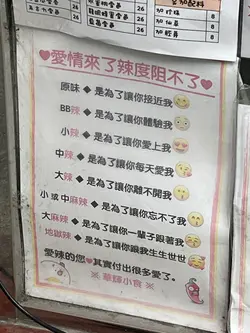 ♥愛情來了辣度阻不了♥
原味◆是為了讓你接近我
BB辣◆是為了讓你體驗我
小辣◆是為了讓你愛上我
中辣◆是為了讓你每天愛我
大辣◆是為了讓你離不開我
小或中麻辣◆是為了讓你忘不了我
大麻辣◆是為了讓你一輩子跟著我
地獄辣◆是為了讓你跟我生生世世
愛辣的您♥其實付出很多愛了。
※華驛小食※